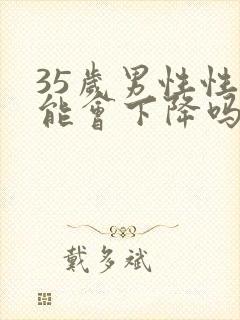 35歲男性性
能會下降吗
戴多斌